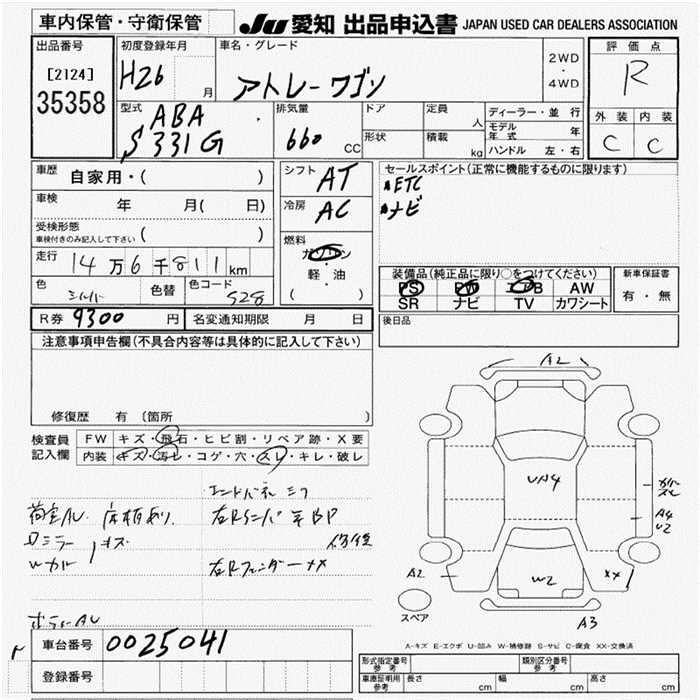 車内保管・守衛保管
JU 愛知 出品申込書 JAPAN USED CAR DEALERS ASSOCIATION
出品番号
[2124]
35358
初度登録年月
H26 月
車名・グレード
アトレーワゴン
2WD
・
4WD
評価点
R
外装 内装
C C
型式
ABA
S331G
排気量
660 CC
ドア
形状
定員 人
積載 kg
ディーラー・並行
モデル年式 年
ハンドル 左・右
車歴 自家用・( )
車検 年 月( 日)
受検形態
車検付きのみ記入して下さい ( )
走行 14万6千811km
色 シルバー 色替 色コード S28
シフト AT
冷房 AC
燃料
ガソリン
・
軽・油
( )
セールスポイント(正常に機能するものに限ります)
ETC
ナビ
装備品(純正品に限り○をつけてください)
PS PW エアB AW
SR ナビ TV カワシート
新車保証書
有・無
R券 9300 円 名変通知期限 月 日
後日品
注意事項申告欄(不具合内容等は具体的に記入して下さい)
修復歴 有 (箇所 )
検査員
記入欄
FW キズ・飛石・ヒビ割・リペア跡・X要
内装 キズ・汚レ・コゲ・穴・スレ・キレ・破レ
荷室AU 床板あり
キズ
右Rフェンダー
ボディAU
車台番号 0025041
登録番号
A2
UA4
W2
A4
U2
A2
XX
A3
スペア
A-キズ E-エクボ U-凹み W-補修跡 S-サビ C-腐食 XX-交換済
形式指定番号
参考
類別区分番号
参考
車庫証明用
参考
長さ cm 幅 cm 高さ cm